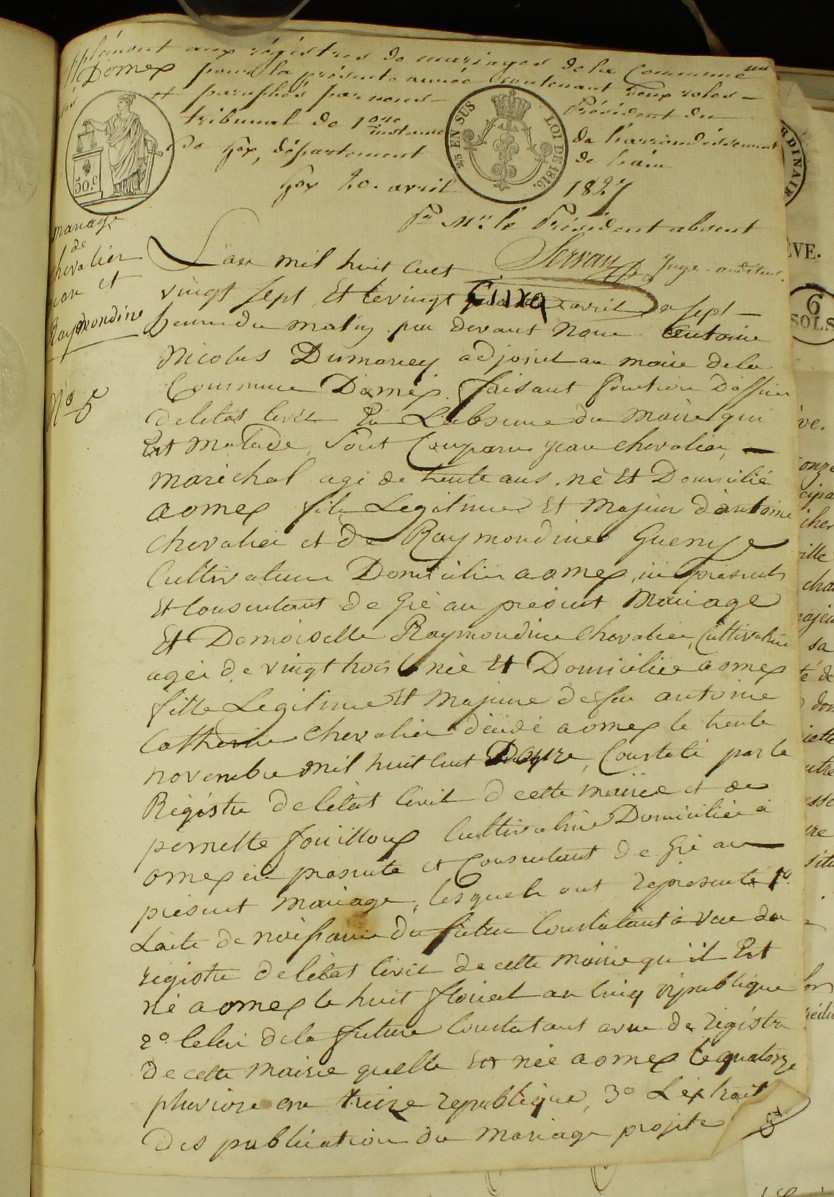 plément aux régistres de mariages de la Commune
D'Ornex pour la présente année contenant deux roles
et paraphés par nous Président du
tribunal de 1ere instance de l'arrondissement
de Gex, département de l'ain
Gex 20 avril 1827
Pr Mr le Président absent
Servan Juge-auditeur
50 c
25 EN SUS
LOI DE 1816.
mariage
de
chevalier
jean et
Raymondine
No 5
L'an mil huit cent
vingt sept, Et le vingt cinq avril a sept
heure du matin par devant nous antoine
Nicolas Dumarey adjoint au maire de la
Commune D'ornex faisant fonction D'officier
de letat Civil En Labsence du maire qui
Est malade, Sont Comparu jean chevalier,
maréchal agé de trente ans, né Et Domicilié
a ornex fils Legitime Et Majeur d'antoine
chevalier et de Raymondine
Cultivateurs Domiciliés a ornex, ici présents
Et Consentant de Gré au présent Mariage
Et Demoiselle Raymondine chevalier, Cultivatrice
agée de vingt trois née Et Domiciliée a ornex
fille Legitime Et Majeure de feu antoine
Catherin chevalier décédé a ornex le trente
novembre mil huit cent Douze, Constaté par le
Régistre de letat Civil de cette mairie et de
pernette fouilloux Cultivatrice Domiciliée à
ornex ici présente et Consentant de Gré au
présent mariage, lesquels ont représenté 1o
Lacte de naissance du futur Constatant a vue du
registre de letat Civil de cette mairie qu'il Est
né a ornex le huit floreal an Cinq république
2o Celui de la future Constatant a vue de régistre
de cette mairie quelle Est née a ornex le quatorze
pluviose an treize republique, 3o L'extrait
des publication du mariage projeté
VE.
6
SOLS
RDINAIRE